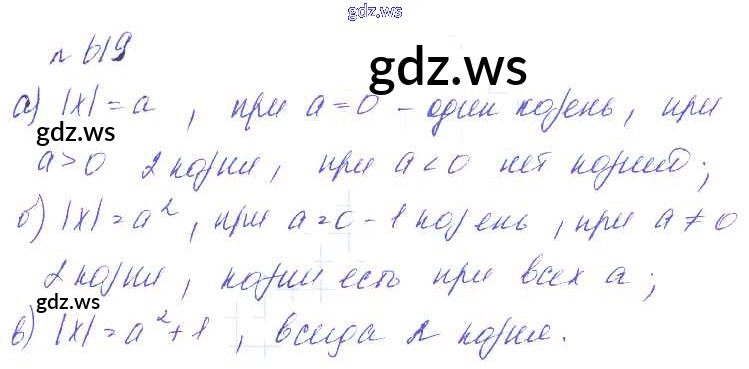 gdz.ws
№ 619
gdz.ws
а) |x| = a , при a = 0 – один корень, при
gdz.ws
a > 0 2 корня, при a < 0 нет корней;
б) |x| = a², при a = 0 – 1 корень, при a ≠ 0
2 корня, корни есть при всех a;
gdz.ws
в) |x| = a² + 1 , всегда 2 корня.
gdz.ws